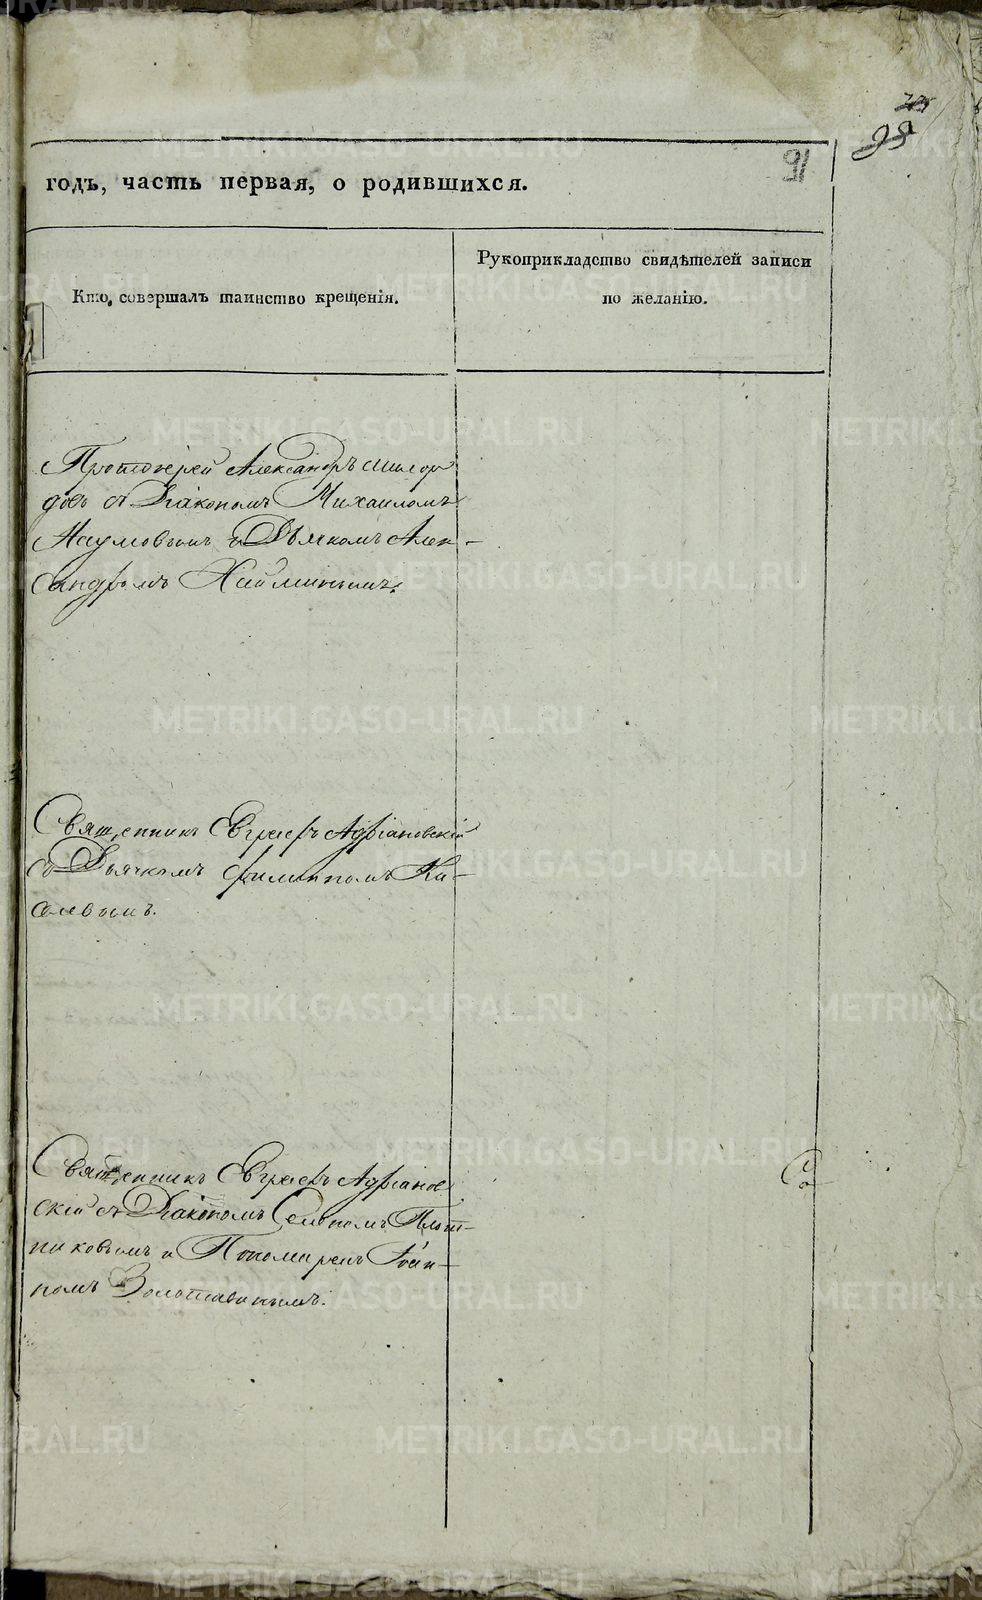 95
91
годъ, часть первая, о родившихся.
Кто совершалъ таинство крещенія.
Рукоприкладство свидѣтелей записи
по желанію.
Протоіерей Александръ Мило
съ Діакономъ Михаиломъ
Наумовымъ и Дьячкомъ Алек-
сандромъ
Священникъ Евграфъ Адріановскій
съ Дьячкомъ Филиппомъ Ки-
селевымъ.
Священникъ Евграфъ Адріанов
скій съ Діакономъ Плот-
никовымъ и Пономаремъ Іоан-
номъ Золотавинымъ.
METRIKI.GASO-URAL.RU